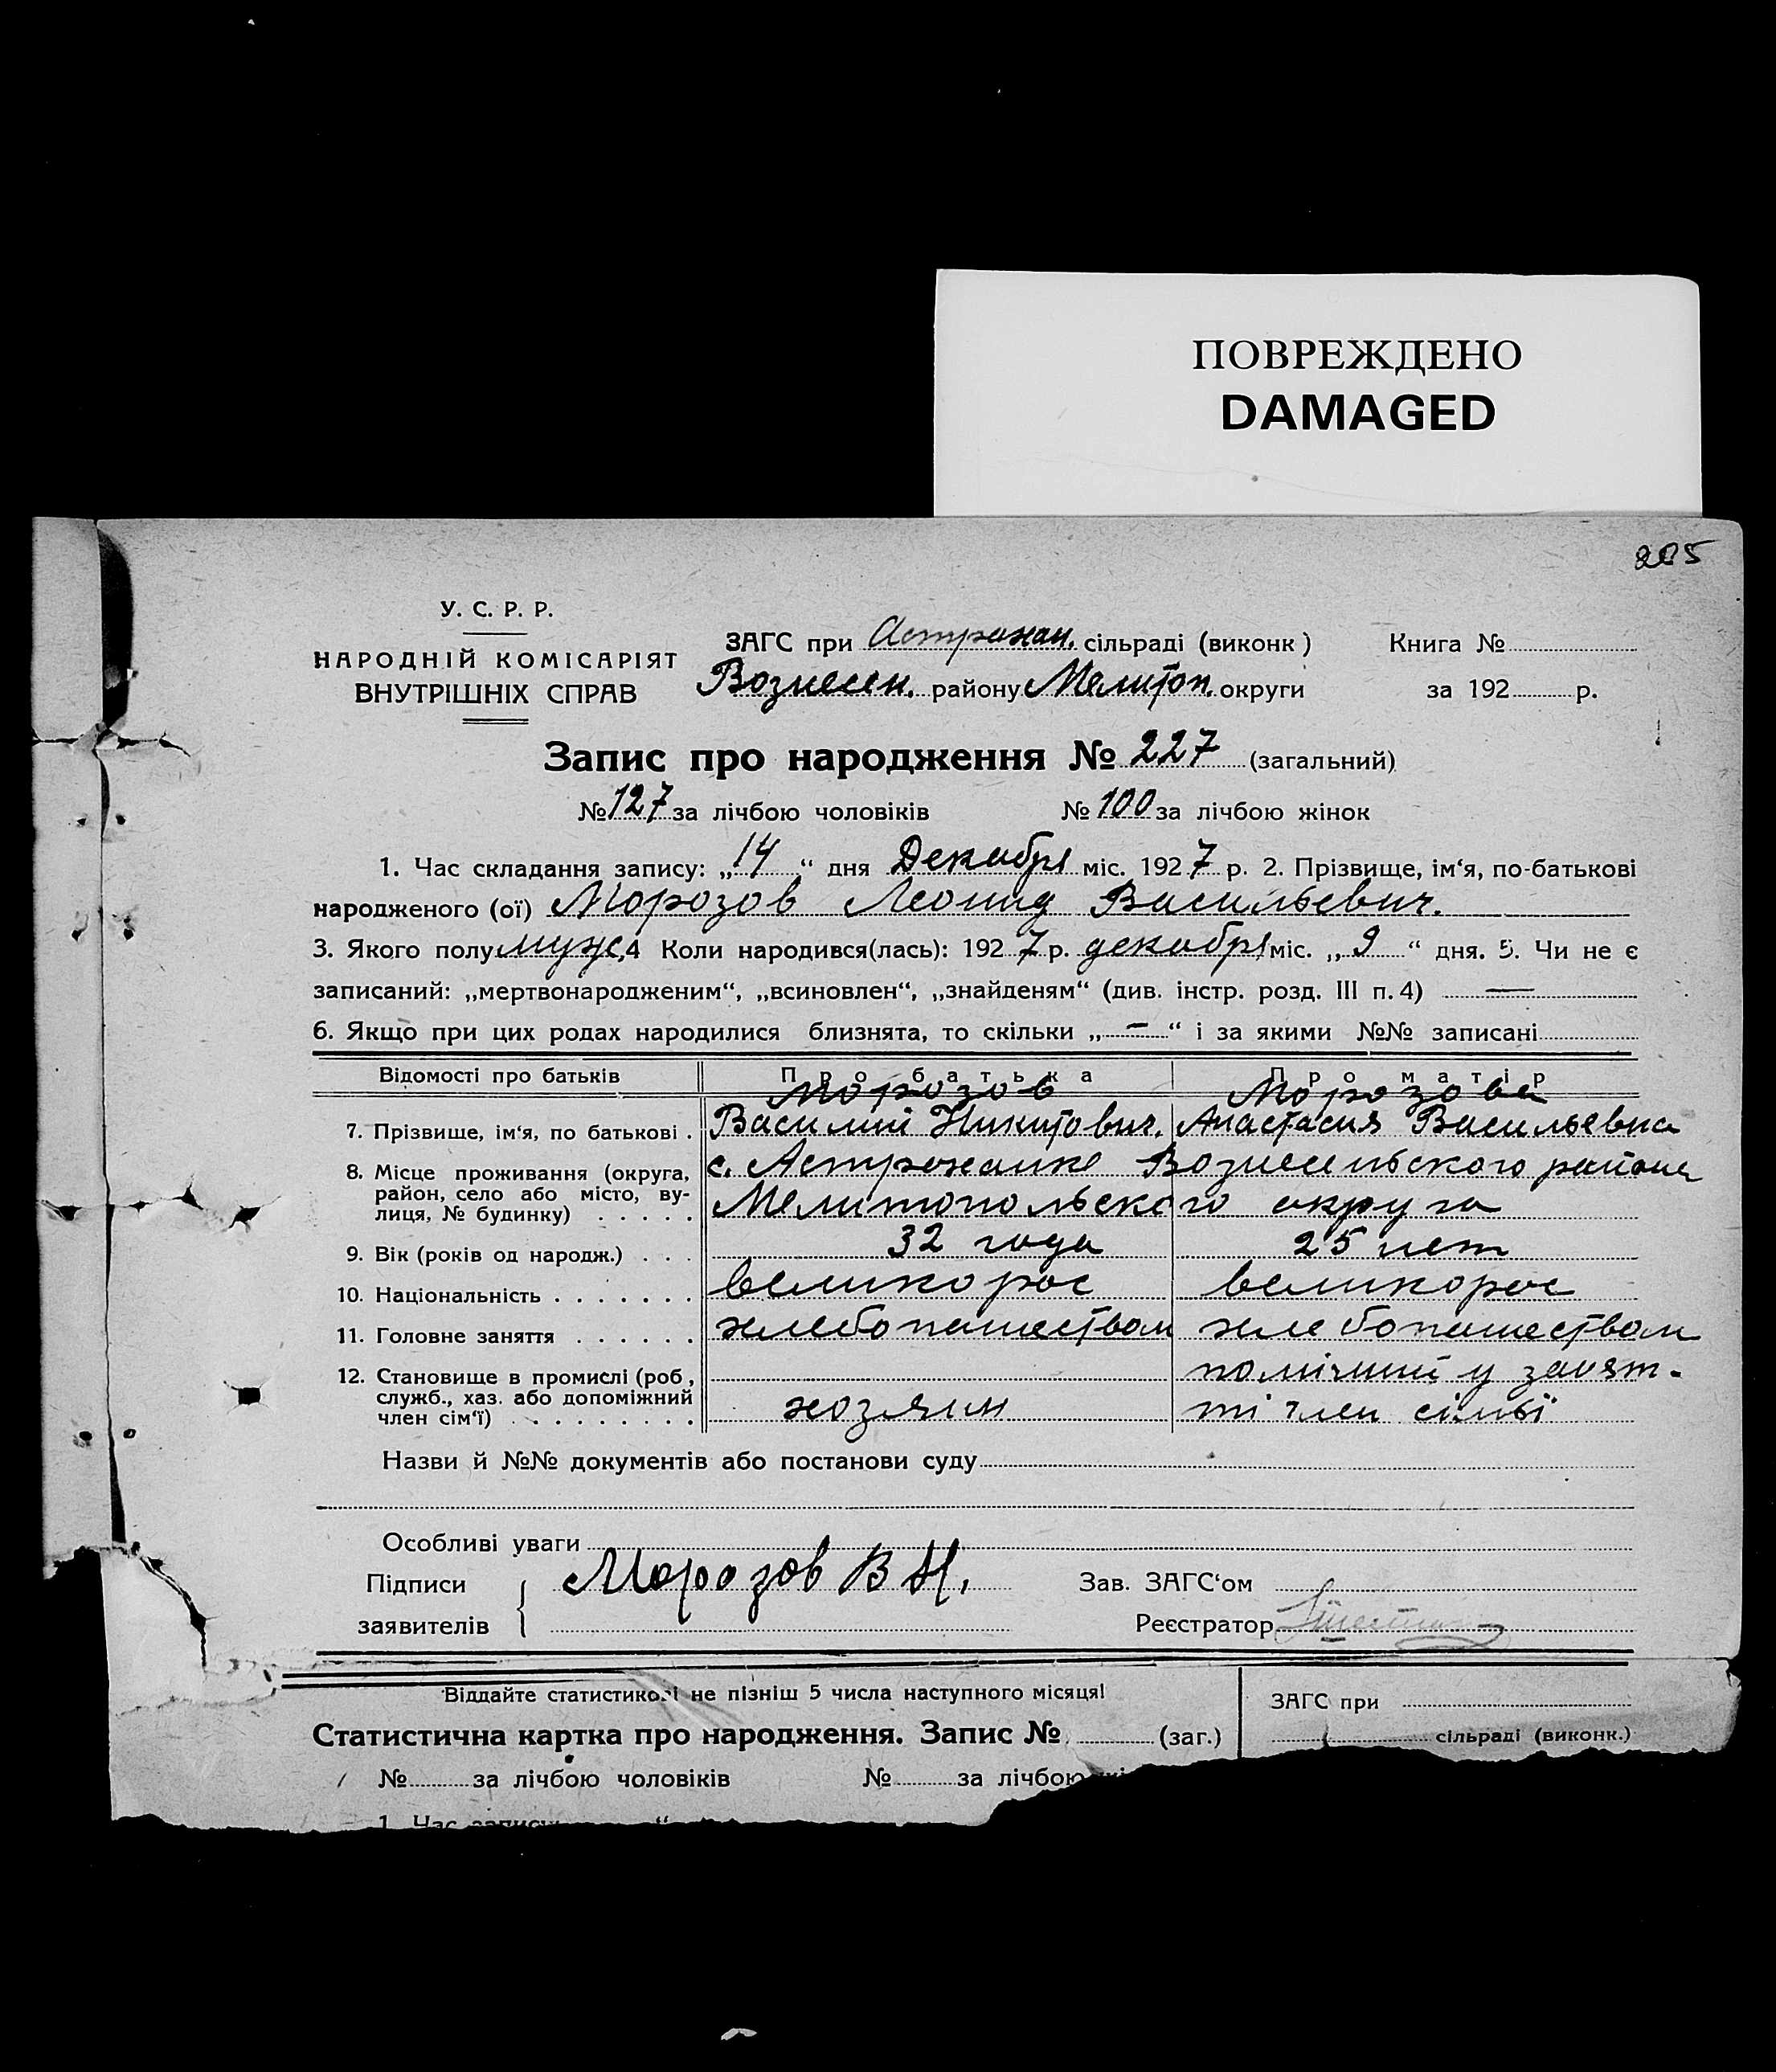 ПОВРЕЖДЕНО
DAMAGED
205
У. С. Р. Р.
НАРОДНІЙ КОМІСАРІЯТ
ВНУТРІШНІХ СПРАВ
ЗАГС при Астрахан. сільраді (виконк)
Книга №
Вознесен. району Мелитоп. округи
за 192 р.
Запис про народження № 227 (загальний)
№ 127 за лічбою чоловіків № 100 за лічбою жінок
1. Час складання запису: „14“ дня Декабря міс. 1927 р. 2. Прізвище, ім‘я, по-батькові
народженого (ої) Морозов Леонид Васильевич.
3. Якого полу муж. 4 Коли народився(лась): 1927 р. декабря міс. „9“ дня. 5. Чи не є
записаний: „мертвонародженим“, „всиновлен“, „знайденям“ (див. інстр. розд. III п. 4) —
6. Якщо при цих родах народилися близнята, то скільки „—“ і за якими №№ записані
Відомості про батьків Про батька Про матір
Морозов Морозова
7. Прізвище, ім‘я, по батькові . Василий Никитович. Анастасия Васильевна
8. Місце проживання (округа, с. Астраханке Вознесенського района
район, село або місто, ву-
лиця, № будинку) . . . . . Мелитопольского округа
9. Вік (років од народж.) . . . 32 года 25 лет
10. Національність . . . . . . . великорос великорос
11. Головне заняття . . . . . . хлебопашеством хлебопашеством
12. Становище в промислі (роб, помічний у занят-
служб., хаз. або допоміжний
член сім‘ї) . . . . . . . . . хозяин ті член сімьї
Назви й №№ документів або постанови суду
Особливі уваги
Підписи
заявителів
Морозов В Н.
Зав. ЗАГС‘ом
Реєстратор
Віддайте статистикові не пізніш 5 числа наступного місяця!
Статистична картка про народження. Запис № (заг.)
ЗАГС при
сільраді (виконк.)
№ за лічбою чоловіків № за лічбою
1. Час запису